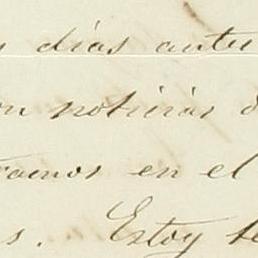 s días ante
on noticias d
ramos en el
s. Estoy te